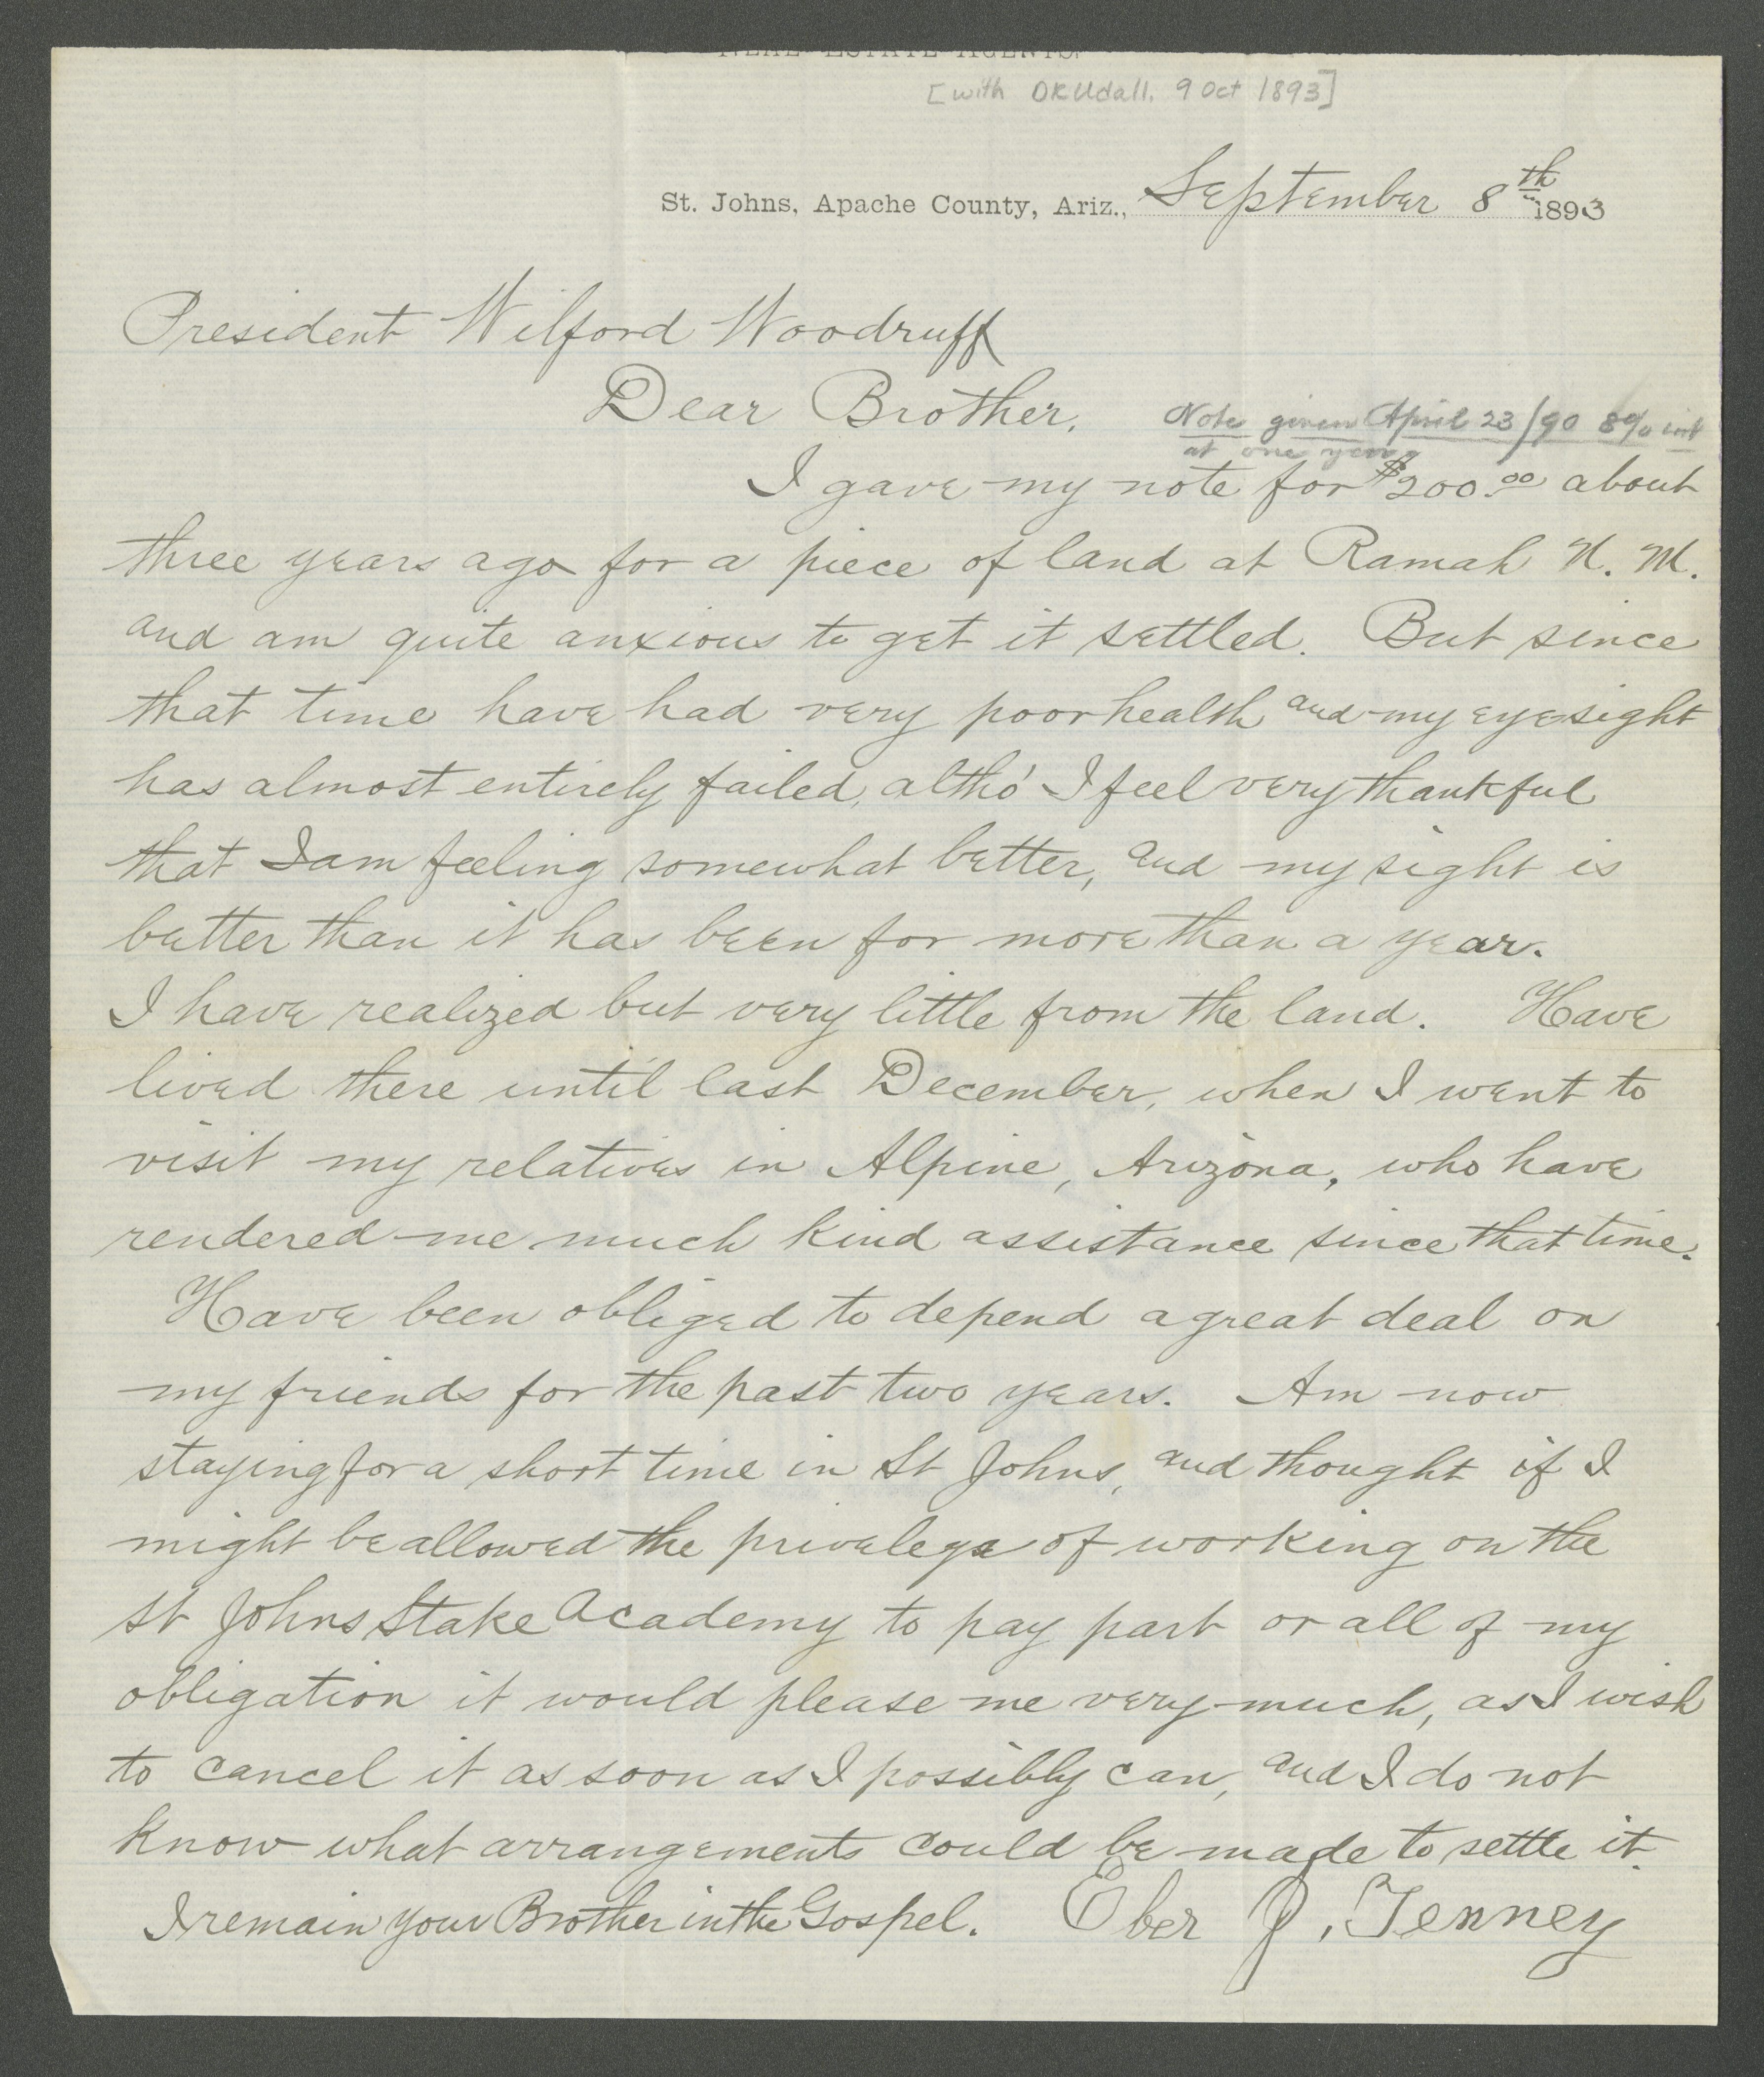 REAL ESTATE AGENTS
[with DKUdall. 9 Oct 1893]
St. Johns, Apache County, Ariz., September 8th 1893
President Wilford Woodruff
Dear Brother.
Note given April 23/90 8% int
at one year
I gave my note for $200.00 about
three years ago for a piece of land at Ramah N. M.
and am quite anxious to get it settled. But since
that time have had very poor health and my eyesight
has almost entirely failed, altho' I feel very thankful
that I am feeling somewhat better, and my sight is
better than it has been for more than a year.
I have realized but very little from the land. Have
lived there until last December, when I went to
visit my relatives in Alpine, Arizona, who have
rendered me much kind assistance since that time.
Have been obliged to depend a great deal on
my friends for the past two years. Am now
staying for a short time in St Johns, and thought if I
might be allowed the privelege of working on the
St Johns Stake Academy to pay part or all of my
obligation it would please me very much, as I wish
to cancel it as soon as I possibly can, and I do not
know what arrangements could be made to settle it.
I remain your Brother in the Gospel. Eber J. Tenney